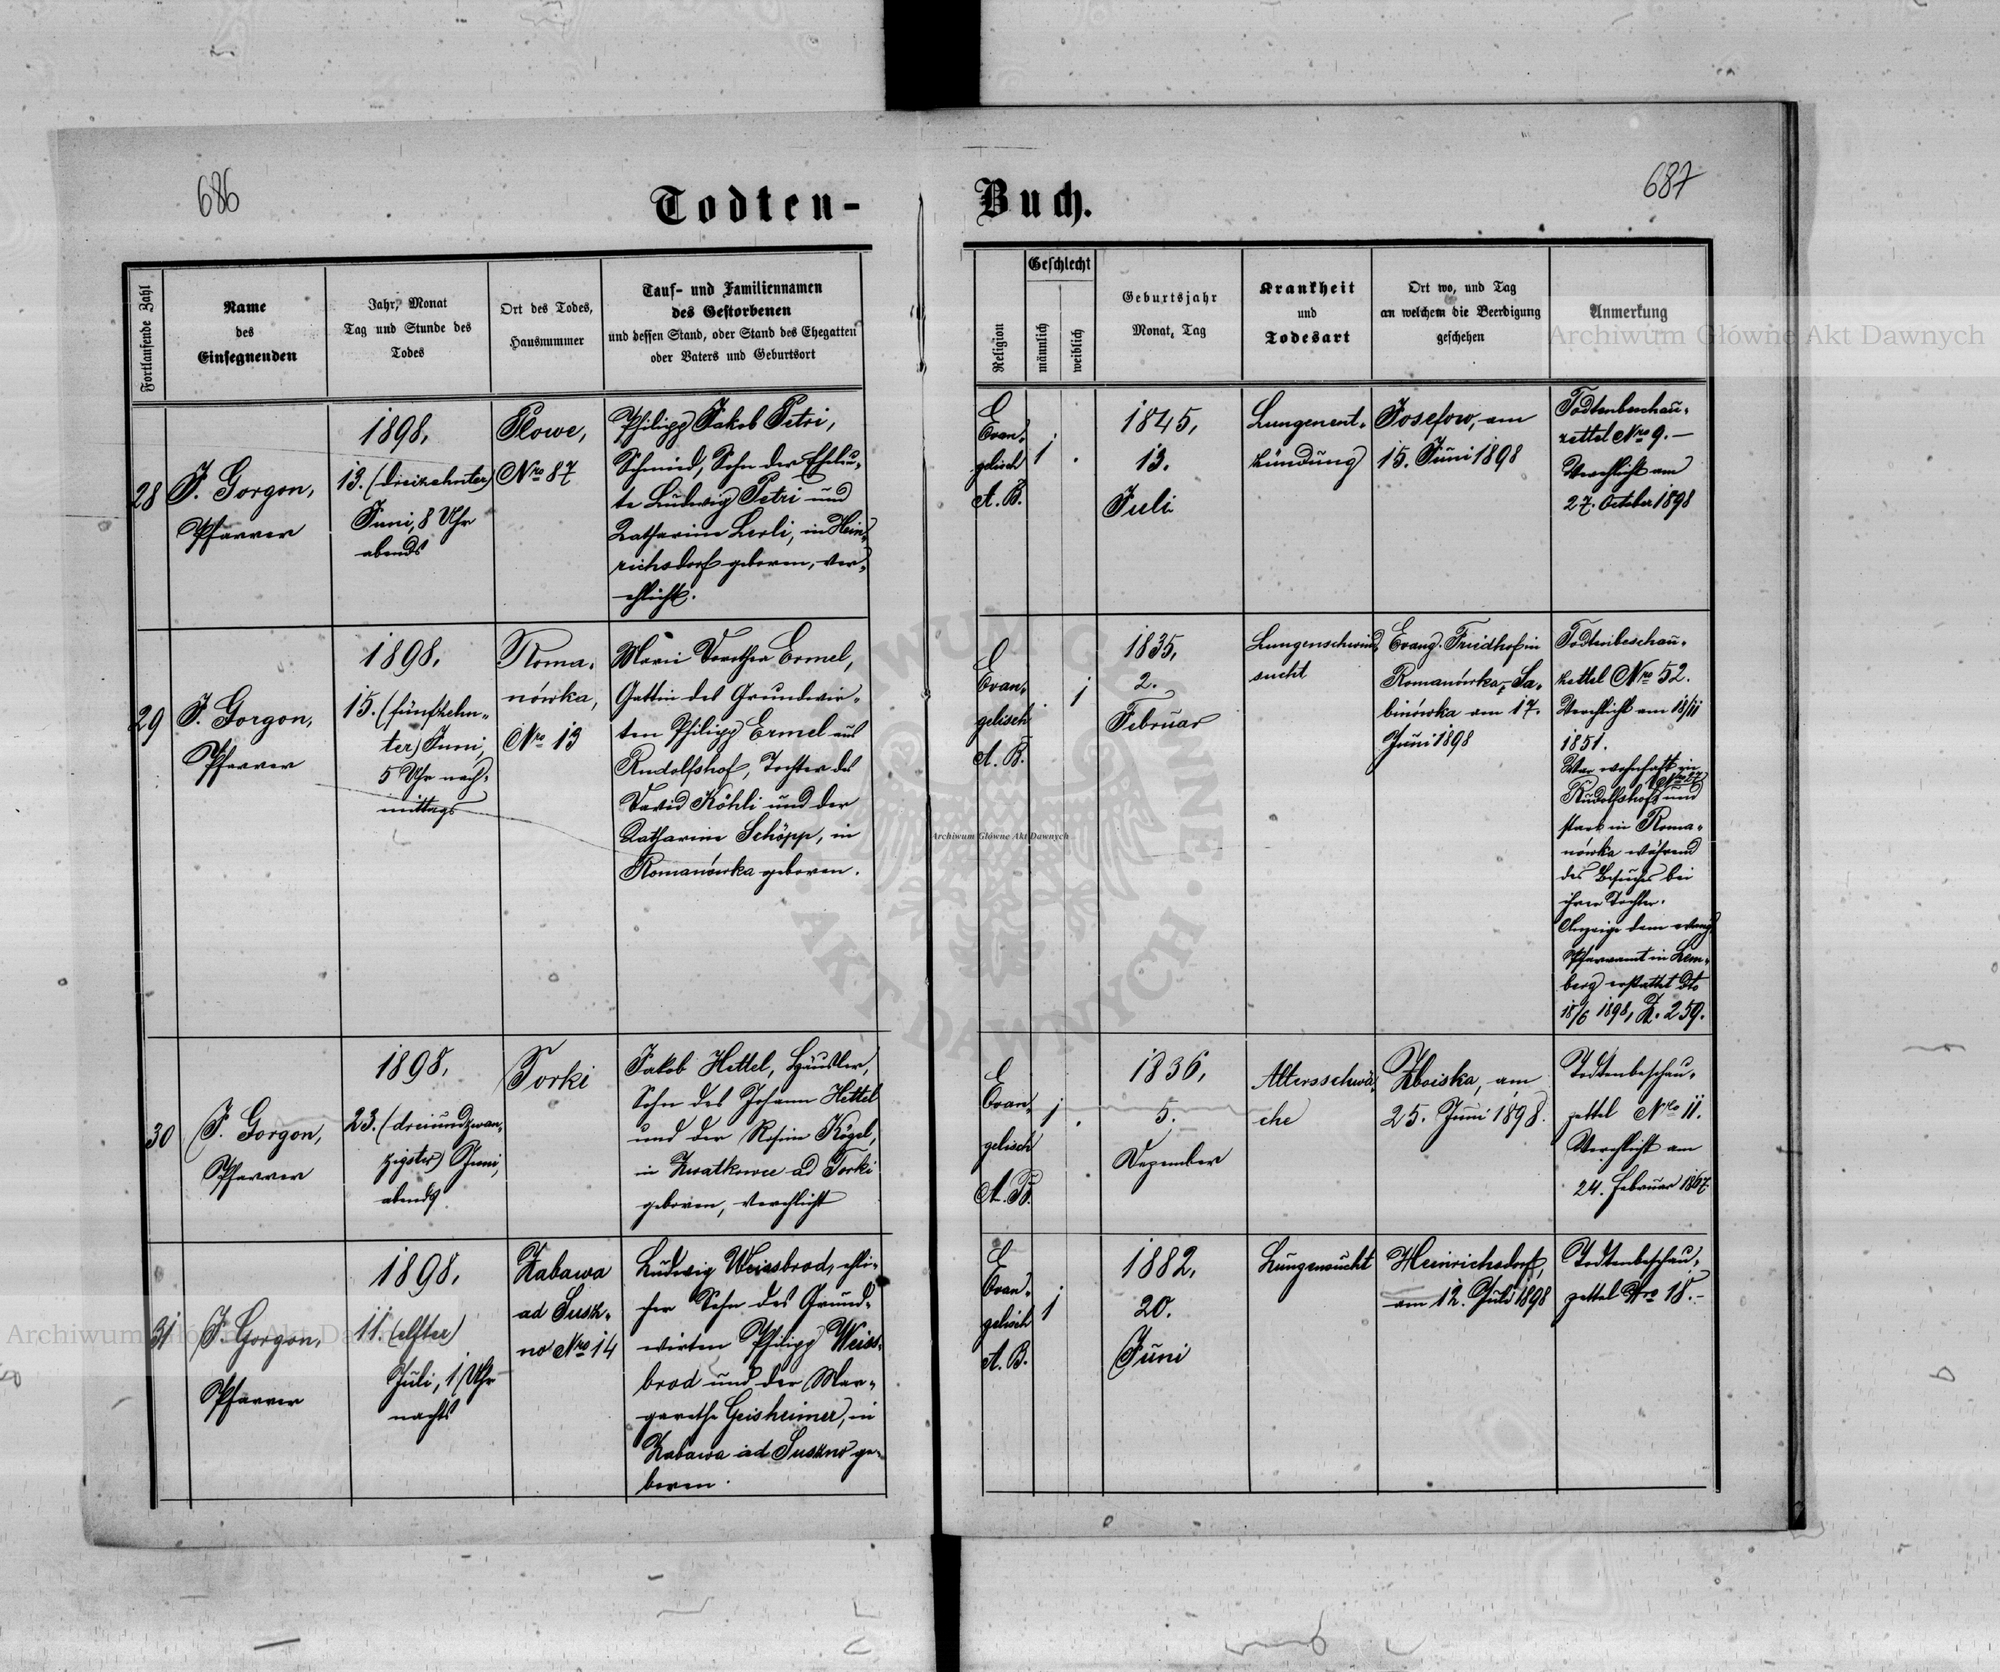 686
Todten-
Buch.
687
Fortlaufende Zahl
Name
des
Einsegnenden
Jahr, Monat
Tag und Stunde des
Todes
Ort des Todes,
Hausnummer
Tauf- und Familiennamen
des Gestorbenen
und dessen Stand, oder Stand des Ehegatten
oder Vaters und Geburtsort
Religion
Geschlecht
männlich
weiblich
Geburtsjahr
Monat, Tag
Krankheit
und
Todesart
Ort wo, und Tag
an welchem die Beerdigung
geschehen
Anmerkung
28
J. Gorgon,
Pfarrer
1898,
13. (dreizehnter)
Juni, 8 Uhr
abends
Stowe,
Nro 87
Philipp Jakob Petri,
Schmied, Sohn der Eheleu-
te Ludwig Petri und
Katharine Lerli, in Hein-
richsdorf geboren, ver-
ehlicht.
Evan-
gelisch
A. B.
1
.
1845,
13.
Juli
Lungenent-
zündung
Josefow, am
15. Juni 1898
Todtenbeschau-
zettel Nro 9. —
Verehlicht am
27. October 1898
29
J. Gorgon,
Pfarrer
1898.
15. (fünfzehn-
ter) Juni,
5 Uhr nach-
mittags
Roma-
nówka,
Nro 13
Marie Dorothea Ermel,
Gattin des Grundwir-
ten Philipp Ermel aus
Rudolfshof, Tochter des
David Köhli und der
Katharine Schöpp, in
Romanówka geboren.
Evan-
gelisch
A. B.
.
1
1835,
2.
Februar
Lungenschwind-
sucht
Evang. Friedhof in
Romanówka-Sa-
binówka am 17.
Juni 1898
Todtenbeschau-
zettel Nro 52.
Verehlicht am 18/11
1851.
War wohnhaft in
Rudolfshof Nro 27 und
starb in Roma-
nówka während
des Besuches bei
ihrer Tochter.
Anzeige dem evang.
Pfarramt in Lem-
berg erstattet dto
18/6 1898, Z. 259.
30
J. Gorgon,
Pfarrer
1898,
23. (dreiundzwan-
zigster) Juni,
abends
Torki
Jakob Hettel, Häusler,
Sohn des Johann Hettel
und der Rosine Kögel,
in Kwatkowce ad Torki
geboren, verehlicht
Evan-
gelisch
A. B.
1
.
1836,
5.
Dezember
Altersschwä-
che
Zboiska, am
25. Juni 1898.
Todtenbeschau-
zettel Nro 11.
Verehlicht am
24. Februar 1867.
31
J. Gorgon,
Pfarrer
1898,
11. (elfter)
Juli, 1 Uhr
nachts
Zabawa
ad Susz-
no Nro 14
Ludwig Weissbrod, ehli-
cher Sohn des Grund-
wirten Philipp Weiss-
brod und der Mar-
garethe Geisheimer, in
Zabawa ad Suszno ge-
boren.
Evan-
gelisch
A. B.
1
1882,
20.
Juni
Lungensucht
Heinrichsdorf,
am 12. Juli 1898
Todtenbeschau-
zettel Nro 18. -
Archiwum Główne Akt Dawnych
Archiwum Główne Akt Dawnych
Archiwum Główne Akt Dawnych